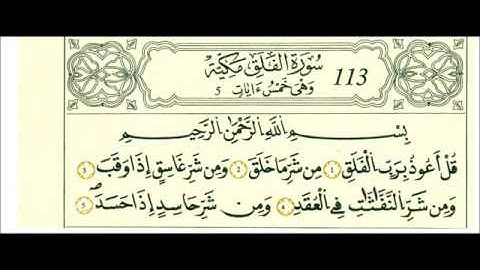 سُورَةُ الْفَلَقِ مَكِّيَّةٌ
113
وَهِيَ خَمْسُ ءَايَاتٍ 5
بِسْمِ اللَّهِ الرَّحْمَٰنِ الرَّحِيمِ
قُلْ أَعُوذُ بِرَبِّ الْفَلَقِ ١ مِن شَرِّ مَا خَلَقَ ٢ وَمِن شَرِّ غَاسِقٍ إِذَا وَقَبَ ٣
وَمِن شَرِّ النَّفَّاثَاتِ فِي الْعُقَدِ ٤ وَمِن شَرِّ حَاسِدٍ إِذَا حَسَدَ ٥